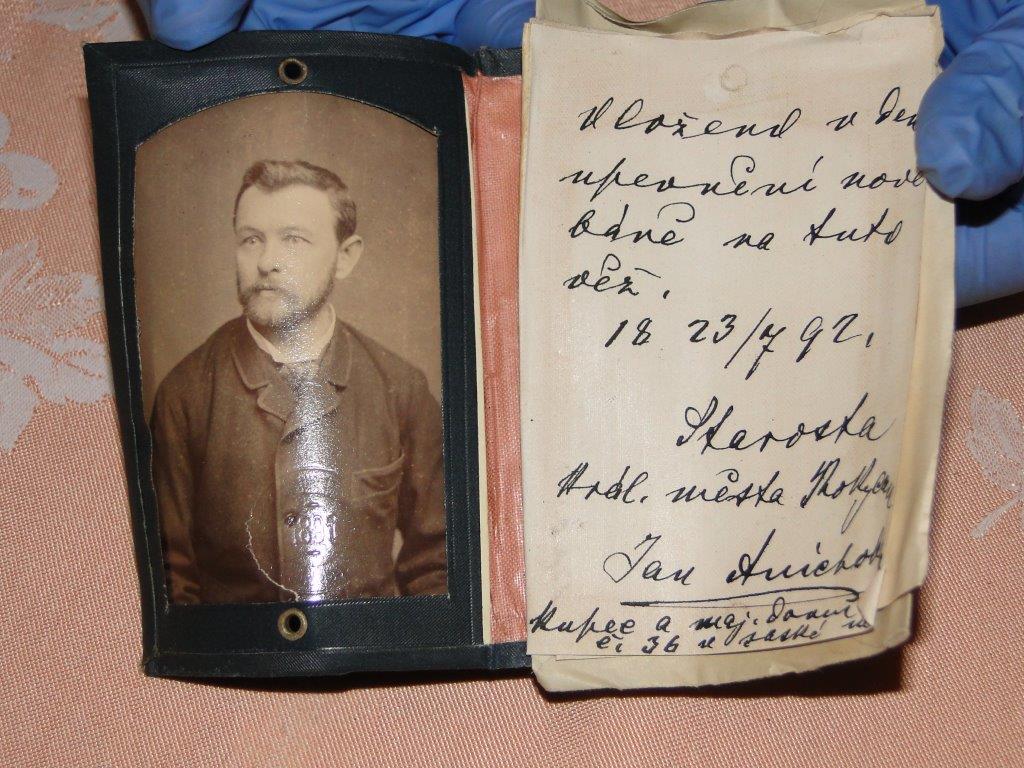 Vloženo v den
upevnění nové
báně na tuto
věž.
18 23/7 92.
Starosta
Král. města Rokycan
Jan
Kupec a maj. domu
č. 36 v